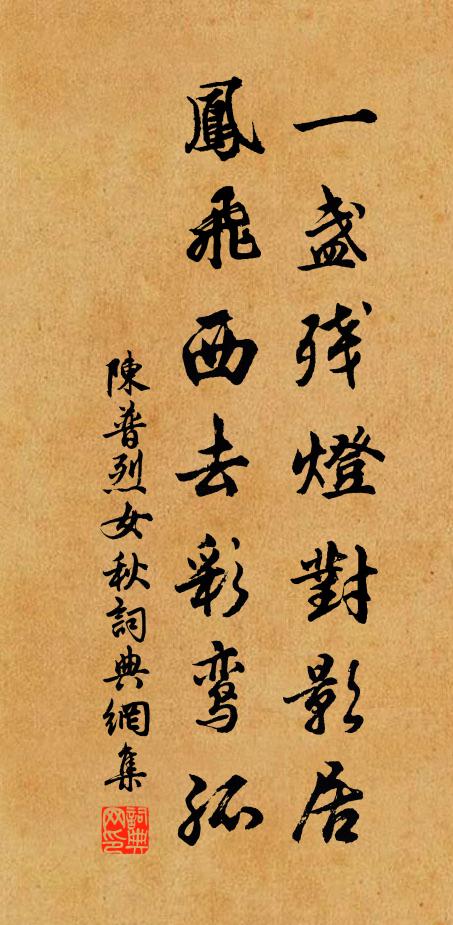 一盏残燈對影居
鳳飛西去彩鸾孤
陳普烈女秋詞典網集
詞典网印